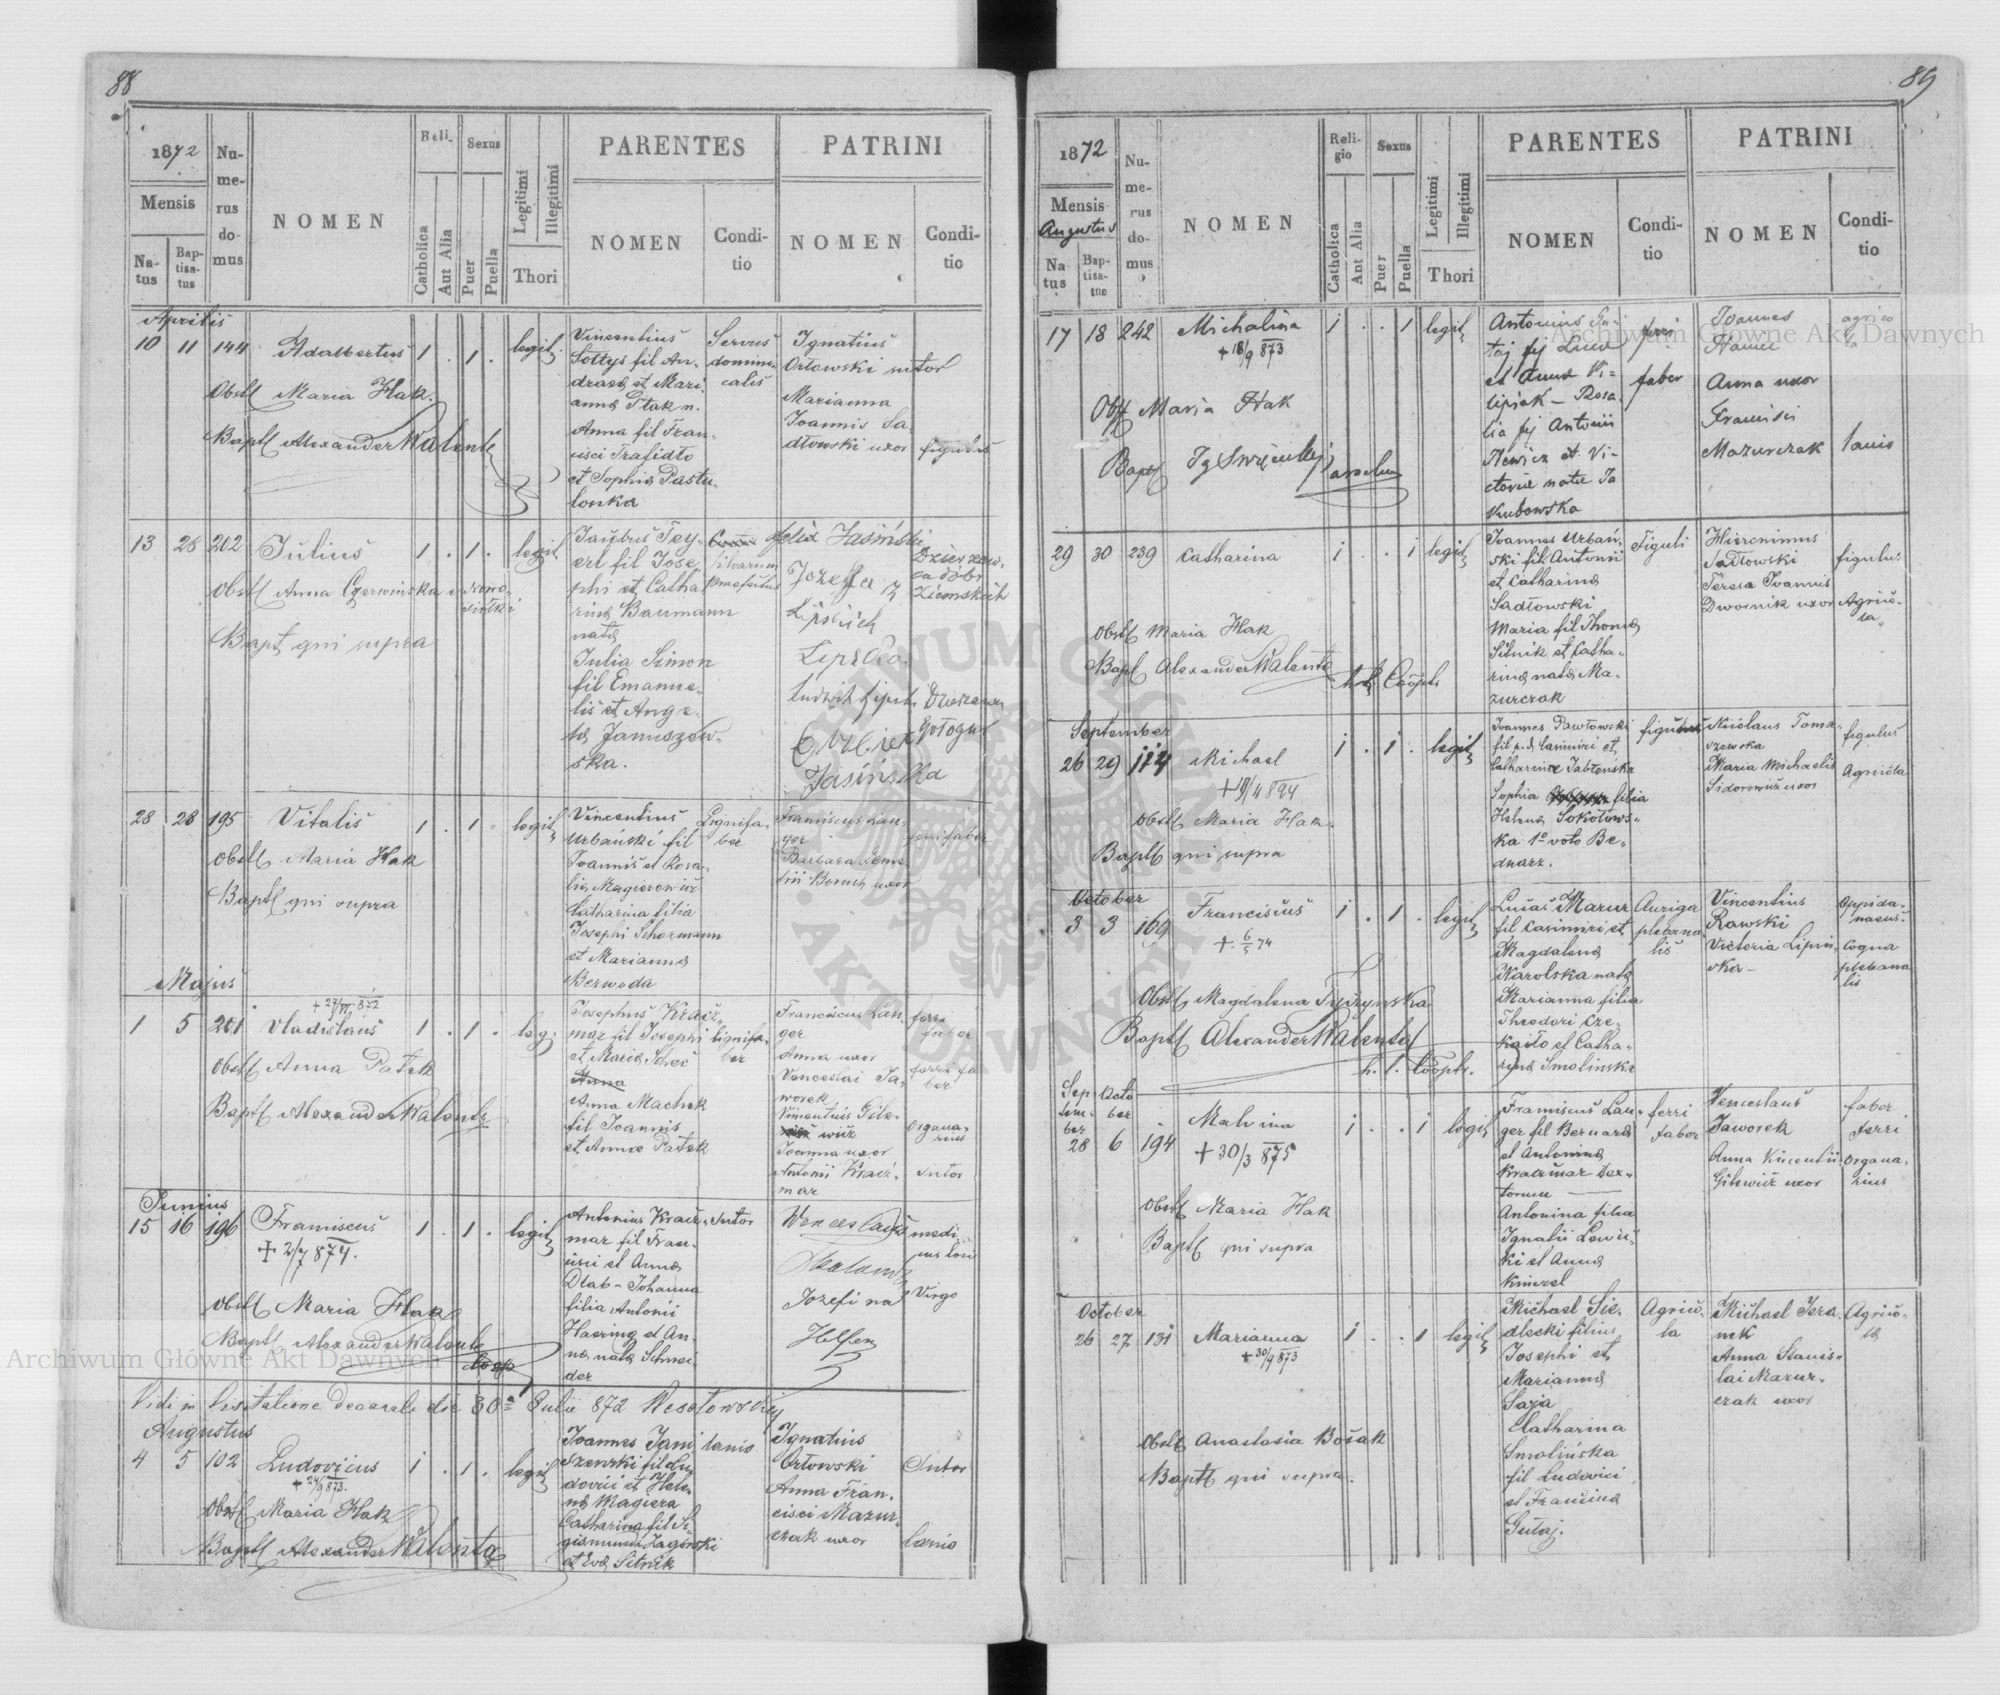 88
1872
Mensis
Na-
tus
Bap-
tisa-
tus
Nu-
me-
rus
do-
mus
NOMEN
Reli-
Catholica
Aut Alia
Sexus
Puer
Puella
Legitimi
Illegitimi
Thori
PARENTES
NOMEN
Condi-
tio
PATRINI
NOMEN
Condi-
tio
Aprilis
10 11 144 Adalbertus 1 . 1 . legit
Obst Maria Hak.
Bapt Alexander Walenta
Vincentius
Sołtys fil An-
dreae et Mari
anna Ptak n.
Anna fil Fran-
cisci Trafidło
et Sophia Pastu-
lonka
Servus
domini-
calis
Ignatius
Orłowski sutor
Marianna
Joannis Sa-
dłowski uxor figulus
13 26 202 Julius 1 . 1 . legit
obst Anna Czerwinska
Bapt qui supra
phi et Catha
rina Baumann
nata
Julia Simon
fil Emanue-
lis et Ange-
la Januszew-
ska.
silvarum
praefectus
Felix Jasiński
Józefa z
Lipskich
Lipska
Jasińska
28 28 195 Vitalis 1 . 1 . legit
obst Maria Hak
Bapt qui supra
Vincentius
Urbański fil
Joannis et Rosa-
lia Magierowicz
Catharina filia
Josephi Schormann
et Marianna
Berwoda
Lignifa-
ber
Franciscus Lan-
ger
ferri faber
Majus
+ 27/VI 872
1 5 201 Vladislaus 1 . 1 . leg.
obst Anna Patek
Bapt Alexander Walenta
Josephus Kracz-
mar fil Josephi
Anna
Anna Machek
fil Joannis
et Anna Patek
lignifa-
ber
Franciscus Lan-
ger
Anna uxor
Venceslai Ja-
worek
Vincentius Gile-
wicz
Joanna uxor
Antonii Kracz-
mar
ferri
faber
ferri fa
ber
Organa-
rius
Sutor
Junius
15 16 196 Franciscus 1 . 1 . legit
+ 2/7 874.
obst Maria Hak
Bapt Alexander Walenta
Coop
Antonius Kracz-
mar fil Fran-
cisci et Anna
Dlab - Johanna
filia Antonii
Haering et An-
na nata Schnei
der
sutor
Józefina
Virgo
Vidi in Visitatione decanali die 30a Julii 872 Wesołowski
Augustus
4 5 102 Ludovicus 1 . 1 . legit
+ 24/9 873.
obst Maria Hak
Bapt Alexander Walenta
Joannes Jani
szewski fil Lu
dovici et Hele-
na Magiera
Catharina fil Si-
gismundi Zagórski
et Eva Sitnik
lanio
Ignatius
Orłowski
Anna Fran-
cisci Mazur-
czak uxor
Sutor
lanio
89
1872
Mensis
Augustus
Na
tus
Bap-
tisa-
tus
Nu-
me-
rus
do-
mus
NOMEN
Reli-
gio
Catholica
Ant Alia
Sexus
Puer
Puella
Legitimi
Illegitimi
Thori
PARENTES
NOMEN
Condi-
tio
PATRINI
NOMEN
Condi-
tio
17 18 242 Michalina 1 . . 1 legit
+ 18/9 873
Obst Maria Hak
Antonius Gu-
lia fil Antonii
Ilewicz et Vi-
ctoria nata Ja
kubowska
ferri
faber
Joannes
Anna uxor
Francisci
Mazurczak
agrico
la
lanio
29 30 239 Catharina 1 . . 1 legit
obst Maria Hak
Bapt Alexander Walenta
Joannes Urbań-
ski fil Antonii
et Catharina
Sadłowski
Maria fil Thoma
Sitnik et Catha-
rina nata Ma-
zurczak
Figuli
Hieronimus
Sadłowski
Teresa Joannis
Dwornik uxor
figulus
Agrico-
la
September
26 29 174 Michael 1 . 1 . legit
obst Maria Hak.
Bapt qui supra
Joannes Pawłowski
fil p.d. Casimiri et
Catharina Jabłońska
Sophia filia
Helena Sokołows-
ka 1o voto Be-
dnarz.
figulus
Nicolaus Toma-
szewska
Maria Michaelis
Sidorowicz uxor
figulus
Agricola
October
3 3 169 Franciscus 1 . 1 . legit
+ 6/5 74
Obst Magdalena Tyczynska
Bapt Alexander Walenta
h. l. Coopr.
Lucas Mazur
fil Casimiri et
Magdalena
Karolska nata
Marianna filia
Theodori Cze-
kaito et Catha-
rina Smolinski
Auriga
plebana
lis
Vincentius
Rawski
Victoria Lipin-
ska -
Oppida-
naeus
Coqua
plebana
lis
Sep
tem-
ber
Octo
ber
28 6 194 Malvina 1 . . 1 legit
+ 30/3 875
obst Maria Hak
Bapt qui supra
Franciscus Lan-
ger fil Bernard
et Antonina
Kraczmar Dex-
torum
Antonina filia
Ignatii Lewic-
ki et Anna
Kmicel
ferri
faber
Venceslaus
Jaworek
Anna Vincentii
Gilewicz uxor
faber
ferri
Organa-
rius
October
26 27 131 Marianna 1 . . 1 legit
+ 30/9 873
obst Anastasia Bosak
Bapt qui supra.
Michael Sie-
dlecki filius
Josephi et
Marianna
Saja
Catharina
Smolińska
fil Ludovici
et Francisca
Gutaj.
Agrico-
la
Michael Jera
nek
Anna Stanis-
lai Mazur-
czak uxor
Agrico-
la
Archiwum Główne Akt Dawnych
Archiwum Główne Akt Dawnych
ARCHIWUM GŁÓWNE AKT DAWNYCH